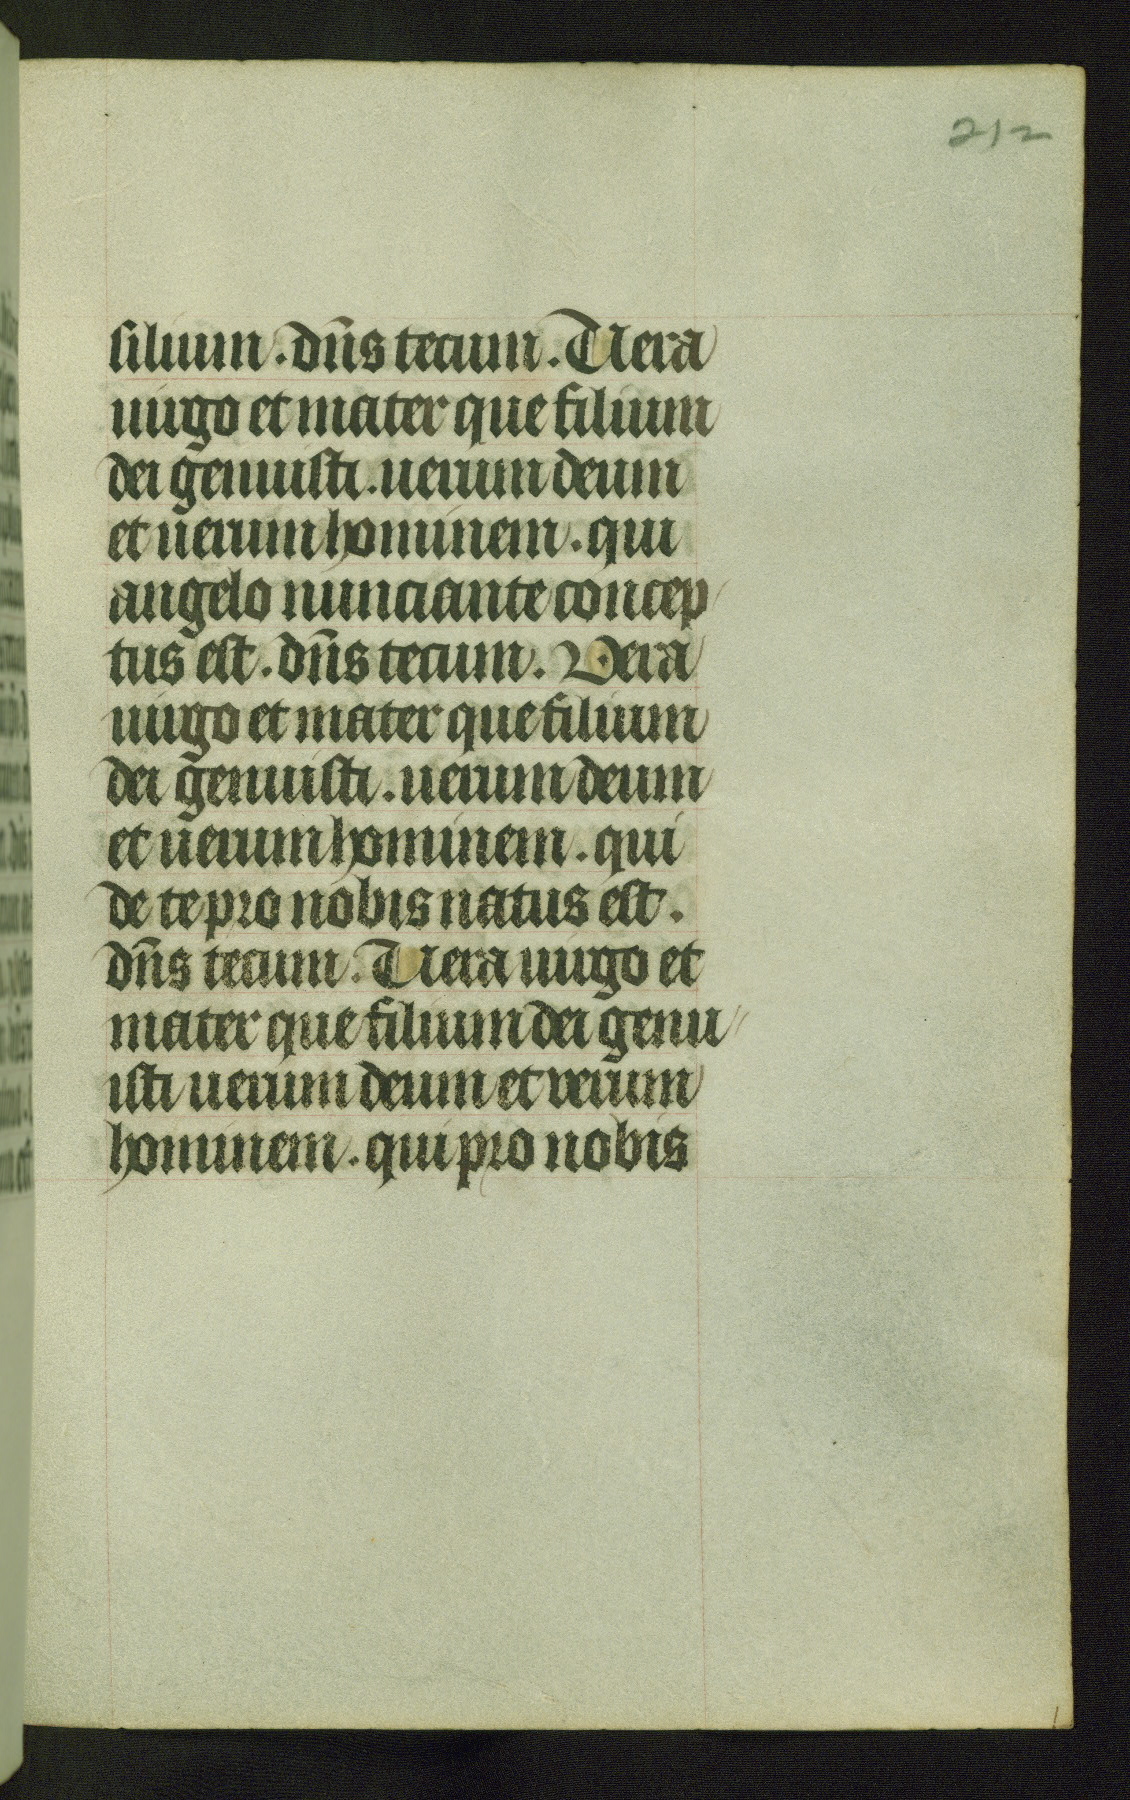 212
silium . dñs tecum . Uera
uirgo et mater que filium
dei genuisti . uerum deum
et uerum hominem . qui
angelo nunciante concep
tus est . dñs tecum . Vera
uirgo et mater que filium
dei genuisti . uerum deum
et uerum hominem . qui
de te pro nobis natus est .
dñs tecum . Uera uirgo et
mater que filium dei genu
isti uerum deum et verum
hominem . qui pro nobis